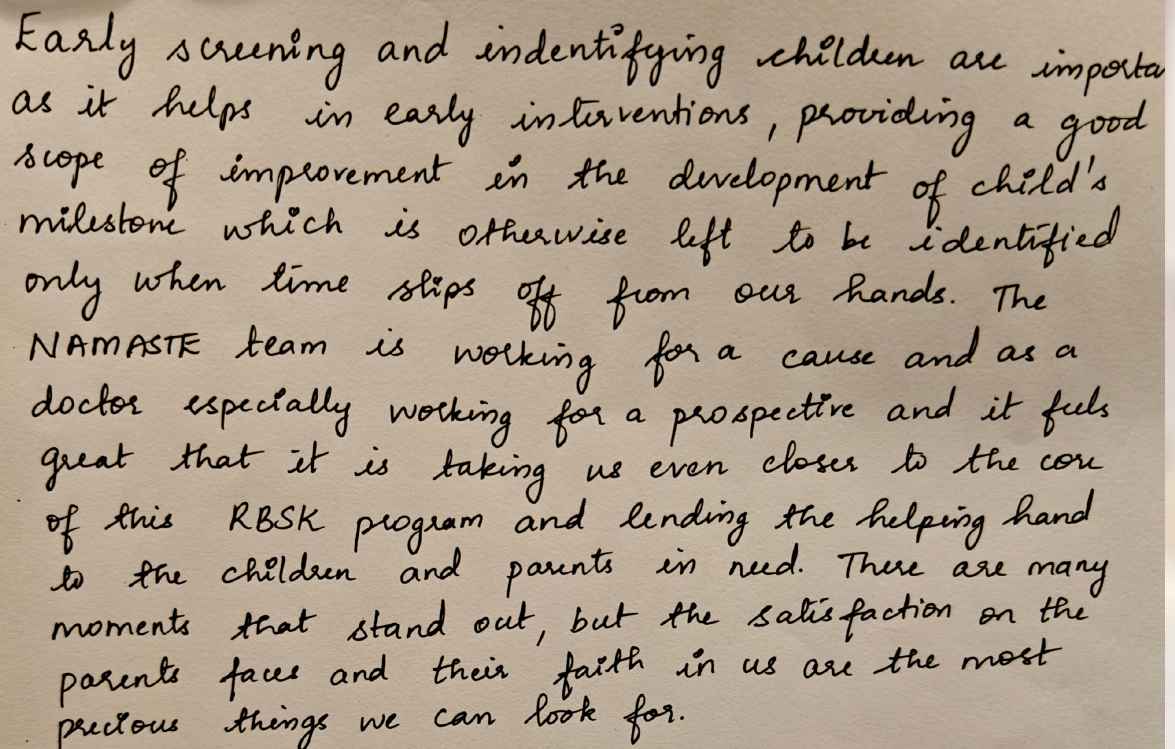 Early screening and indentifying children are importa
as it helps in early interventions, providing a good
scope of improvement in the development of child's
milestone which is otherwise left to be identified
only when time slips off from our hands. The
NAMASTE team is working for a cause and as a
doctor especially working for a prospective and it feels
great that it is taking us even closer to the core
of this RBSK program and lending the helping hand
to the children and parents in need. There are many
moments that stand out, but the satisfaction on the
parents faces and their faith in us are the most
precious things we can look for.